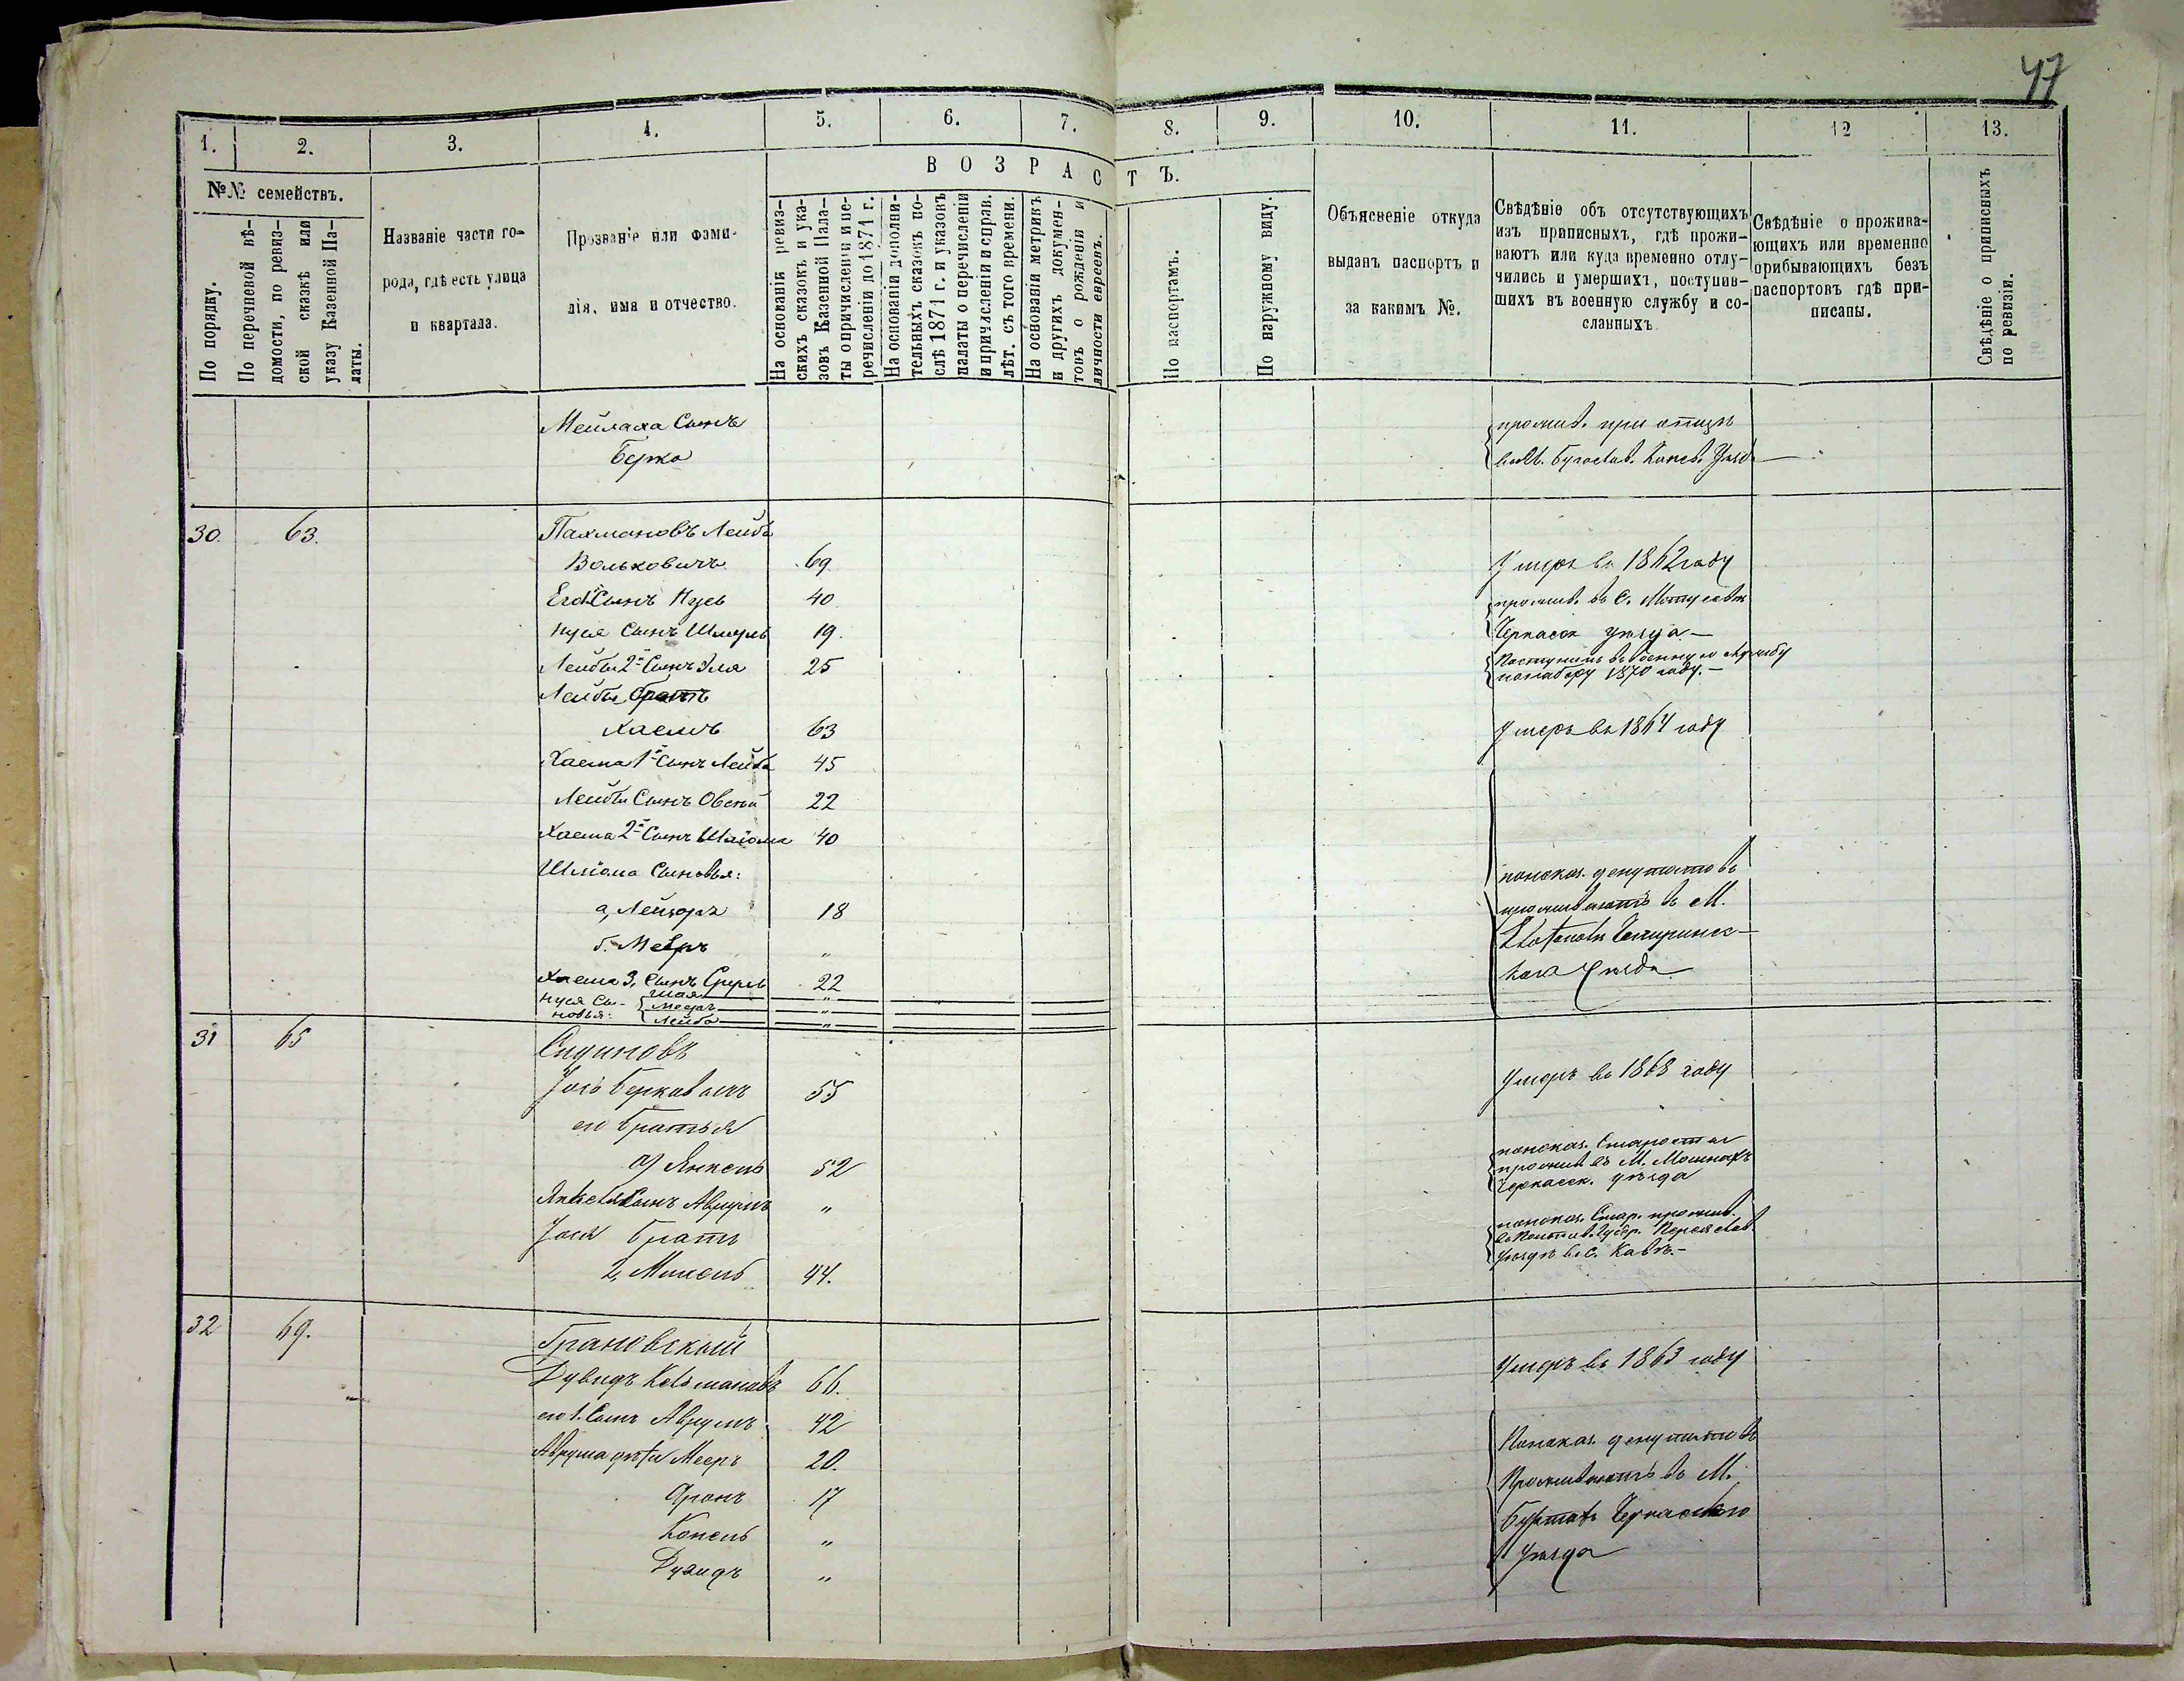 47
1. 2. 3. 4. 5. 6. 7. 8. 9. 10. 11. 12 13.
№№ семействъ.
По порядку.
По перечневой вѣ-
домости, по ревиз-
ской сказкѣ или
указу Казенной Па-
латы.
Названіе части го-
рода, гдѣ есть улица
и квартала.
Прозваніе или фами-
лія, имя и отчество.
ВОЗРАСТЪ.
На основаніи ревиз-
скихъ сказокъ и ука-
зовъ Казенной Пала-
ты о причисленіи и пе-
речисленіи до 1871 г.
На основаніи дополни-
тельныхъ сказокъ по-
слѣ 1871 г. и указовъ
палаты о перечисленіи
и причисленіи и справ.
лѣт. съ того времени.
На основаніи метрикъ
и другихъ докумен-
товъ о рожденіи и
личности евреевъ.
По паспортамъ.
По наружному виду.
Объясненіе откуда
выданъ паспортъ и
за какимъ №.
Свѣдѣніе объ отсутствующихъ
изъ приписныхъ, гдѣ прожи-
ваютъ или куда временно отлу-
чились и умершихъ, поступив-
шихъ въ военную службу и со-
сланныхъ
Свѣдѣніе о прожива-
ющихъ или временно
прибывающихъ безъ
паспортовъ гдѣ при-
писаны.
Свѣдѣніе о приписныхъ
по ревизіи.
Мейлаха Сынъ прожив. при отцѣ
Берко Канев. Уѣзд.
30. 63. Пахмановъ Лейба
Вольковичъ 69 Умеръ въ 1862 году
Его Сынъ Нусь 40 прожив. въ С.
Нуся Сынъ Шмуль 19. Черкасск уѣзда
Лейбы 2й Сынъ Эля 25 Поступилъ въ военную службу
понабору 1870 году.
Лейбы братъ
Хаемъ 63 Умеръ въ 1864 году
Хаема 1й Сынъ Лейба 45
Лейбы Сынъ Овсей 22
Хаема 2й Сынъ Шліома 40
Шліома Сыновья: показ. депутатовъ
а, Лейзоръ 18 проживаютъ въ М.
б. Мееръ " Чигиринс-
Хаема 3, Сынъ Сруль 22 каго уѣзда
Нуся Сы-
новья:
Мееръ "
Лейба "
31 65 Сидиновъ
Іось Берковичъ 55 Умеръ въ 1868 году
его братья
а) Янкель 52 показ. Старосты
прожив въ М. Мошнахъ
Черкасск. уѣзда
Янкеля Сынъ Аврумъ "
Іося братъ показ. Стар. прожив.
въ Полтав. Губер. Переяслав
2, Михель 44. уѣздѣ въ с.
32 69. Грановский
Дувидъ Кельмановъ 66. Умеръ въ 1863 году
его 1. Сынъ Аврумъ 42 Показ. депутатовъ
Аврума дѣти Мееръ 20. Проживаютъ въ М.
Аронъ 17 Черкаскаго
Копель " уѣзда
Дувидъ "